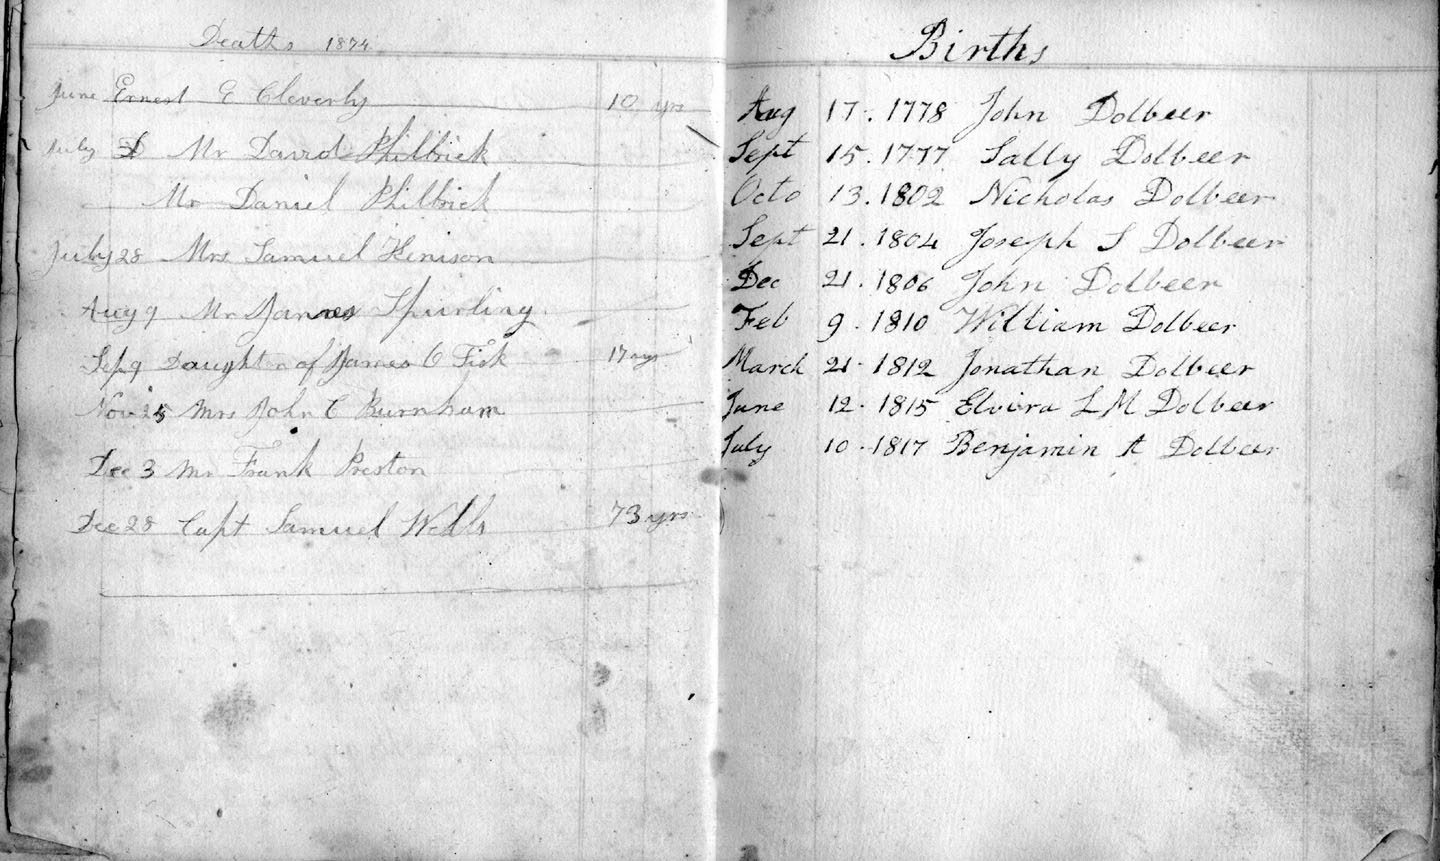 Deaths 1874
June Ernest E Cleverly 10 yrs
July D Mr David Philbrick
Mr Daniel Philbrick
July 28 Mrs Samuel Henison
Aug 9 Mr James Spurling
Sep 9 Daughtr of James O Fisk 17 ays
Nov 25 Mrs John C Burnham
Dec 3 Mr Frank Preston
Dec 28 Capt Samuel Wells 73 yrs
Births
Aug 17. 1778 John Dolbeer
Sept 15. 1777 Sally Dolbeer
Octo 13. 1802 Nicholas Dolbeer
Sept 21. 1804 Joseph S Dolbeer
Dec 21. 1806 John Dolbeer
Feb 9. 1810 William Dolbeer
March 21. 1812 Jonathan Dolbeer
June 12. 1815 Elvira L M Dolbeer
July 10. 1817 Benjamin A Dolbeer